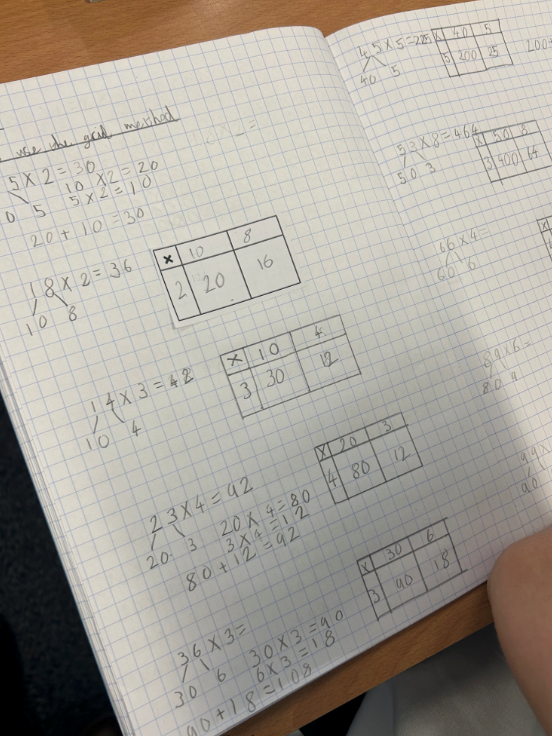 use the grid method
5 X 2 = 30
10 X 2 = 20
5 X 2 = 10
0 5
20 + 10 = 30
18 X 2 = 36
10 8
x 10 8
2 20 16
14 X 3 = 42
10 4
X 10 4
3 30 12
23 X 4 = 92
20 3
20 X 4 = 80
3 X 4 = 12
80 + 12 = 92
X 20 3
4 80 12
36 X 3 =
30 6
30 X 3 = 90
6 X 3 = 18
90 + 18 = 108
X 30 6
3 90 18
45 X 5 = 225
40 5
X 40 5
5 200 25
200
53 X 8 = 464
50 3
X 50 8
3 400 64
66 X 4 =
60 6
X
89 X 6 =
80 9
99 X
90